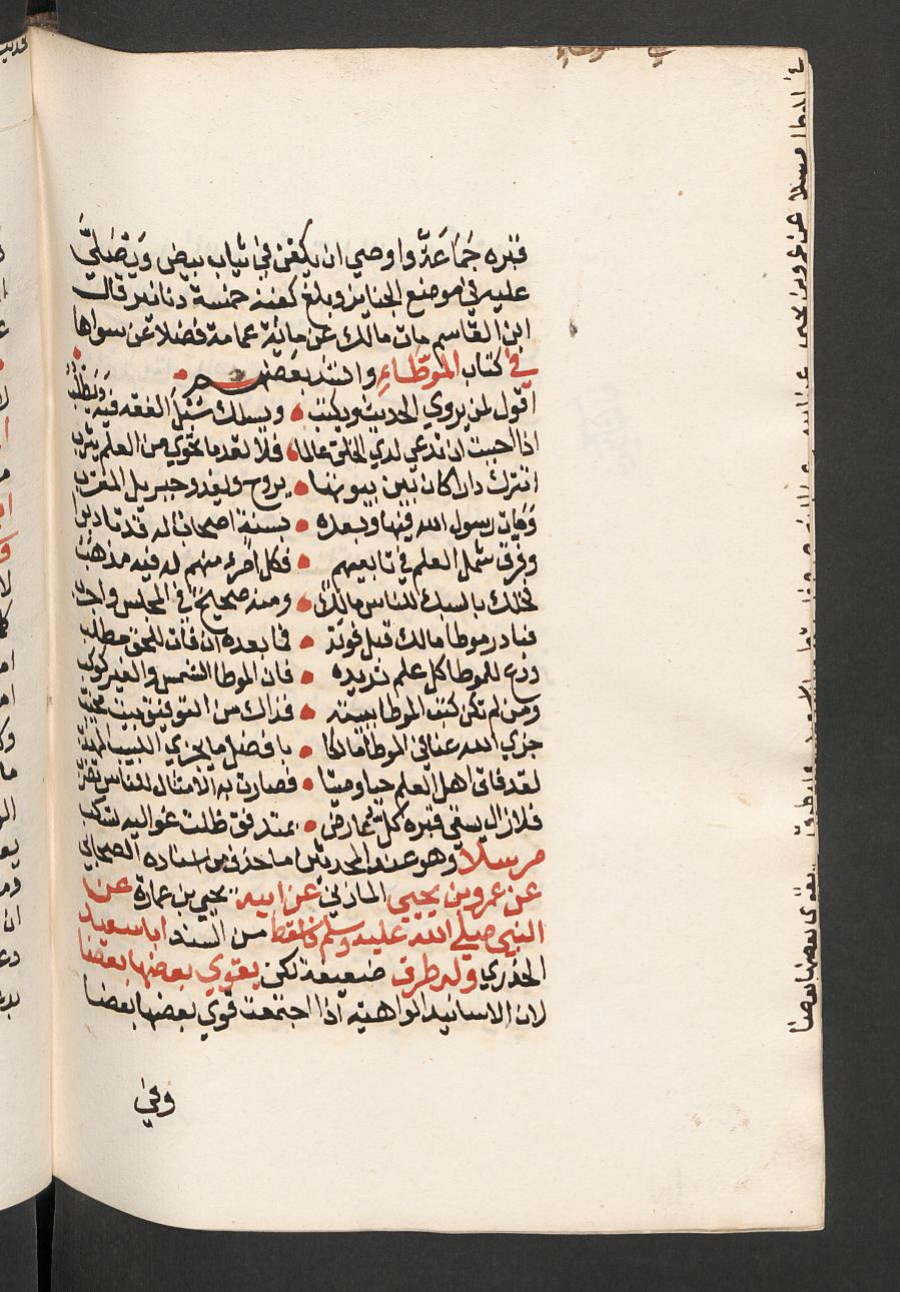 قبره جماعة واوصي ان يكفن في ثياب بيض ويصلي
عليه في موضع الجنايز وبلغ كفنه خمسة دنانير قال
ابن القاسم مات مالك عن مائة عمامة فضلا عن سواها
في كتاب الموطاء وانشد بعضهم
اقول لمن يروي الحديث ويكتب • ويسلك سبل الفقه فيه ويطلب
اذا احببت ان تدعي لدي الخلق عالما • فلا تعد ما تحوي من العلم يثرب
اتترك دارا كان بين بيوتها • يروح ويغدو جبريل المقرب
ومات رسول الله فيها وبعده • بسنة اصحابه قد تادبوا
وفرق شمل العلم في تابعيهم • فكل امرء منهم له فيه مذهب
فخلصه بالسبك للناس مالك • ومنه صحيح في المجلس واجرب
فبادر موطا مالك قبل فوته • فما بعده ان فات للحق مطلب
ودع للموطا كل علم تريده • فان الموطا الشمس والغير كوكب
ومن لم تكن كتب الموطا ببيته • فذاك من التوفيق بيت مخيب
جزي الله عنا في الموطا مالكا • بافضل ما يجزي اللبيب المهذب
لقد فاق اهل العلم حيا وميتا • فصارت به الامثال للناس تضرب
فلا زال يسقي قبره كل عارض • بمندفق ظلت عزاليه تسكب
مرسلا وهو عند المحدثين ما حذف من اسناده الصحابي
عن عمرو بن يحيي المازني عن ابيه يحيي بن عمارة عن
النبي صلي الله عليه وسلم فاسقط من السند ابا سعيد
الخدري وله طرق ضعيفة لكن يقوي بعضها بعضا
لان الاسانيد الواهية اذا اجتمعت قوي بعضها بعضا
وفي